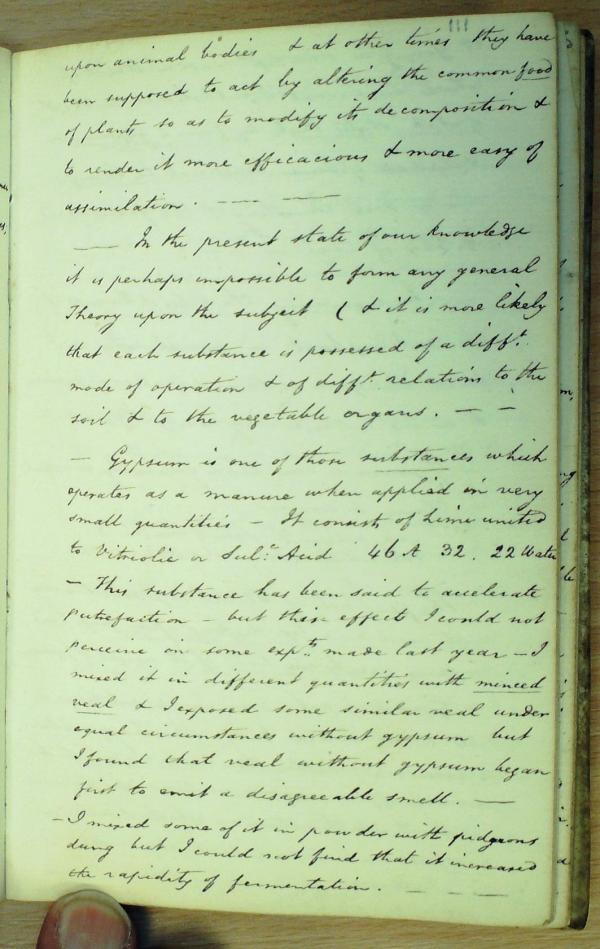 111
upon animal bodies & at other times they have
been supposed to act by altering the common food
of plants so as to modify its decomposition &
to render it more efficacious & more easy of
assimilation. — —
— In the present state of our knowledge
it is perhaps impossible to form any general
Theory upon the subject ( & it is more likely
that each substance is possessed of a difft.
mode of operation & of difft. relations to the
soil & to the vegetable organs. — —
— Gypsum is one of those substances which
operates as a manure when applied in very
small quantities – It consist of Lime united
to Vitriolic or Sulc. Acid 46 A 32. 22 Water
– This substance has been said to accelerate
putrefaction – but this effect I could not
perceive in some expts. made last year – I
mixed it in different quantities with minced
veal & I exposed some similar veal under
equal circumstances without gypsum but
I found that veal without gypsum began
first to emit a disagreeable smell. —
– I mixed some of it in powder with pidgeons
dung but I could not find that it increased
the rapidity of fermentation. — — — —